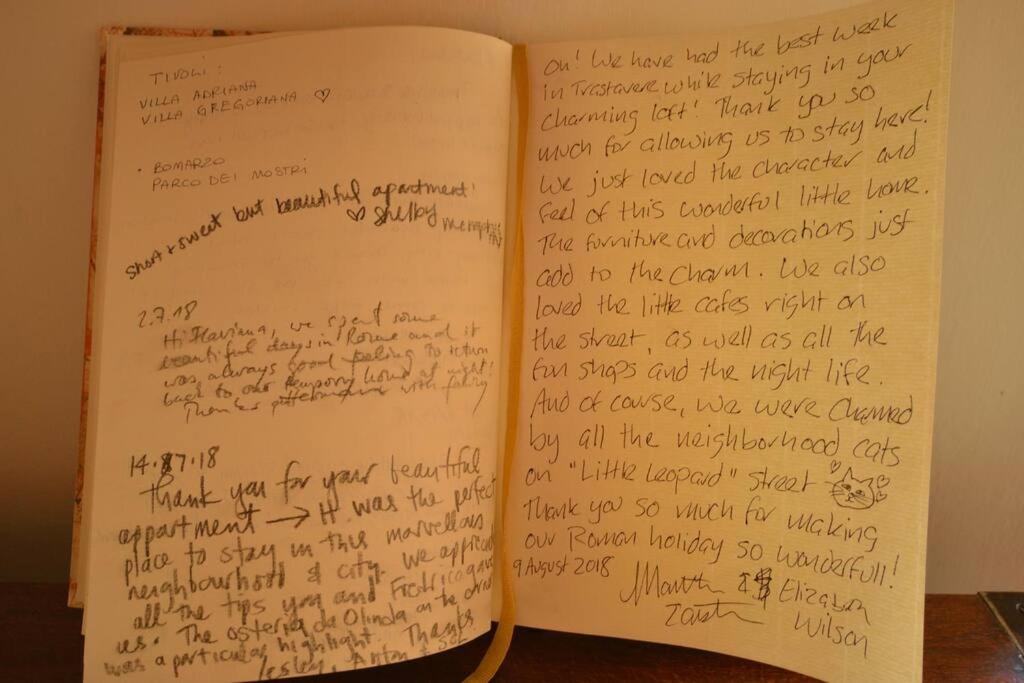 TIVOLI:
VILLA ADRIANA
VILLA GREGORIANA ♡
. BOMARZO
PARCO DEI MOSTRI
Short & sweet but beautiful apartment!
♡ Shelby
2.7.18
Hi Flaviana, we spent some
beautiful days in Rome and it
was always good feeling to return
back to our temporary home at night!
Thanks with family
14.7.18
Thank you for your beautiful
appartment → It was the perfect
place to stay in this marvellous
neighbourhood & city. We
all the tips you and
us. The osteria da Olinda on the
was a particular highlight. Thanks
Lesley, Anton &
Oh! We have had the best week
in Trastavere while staying in your
charming loft! Thank you so
much for allowing us to stay here!
We just loved the character and
feel of this wonderful little home.
The furniture and decorations just
add to the charm. We also
loved the little cafes right on
the street, as well as all the
fun shops and the night life.
And of course, we were charmed
by all the neighborhood cats
on "Little Leopard" street
Thank you so much for making
our Roman holiday so wonderfull!
9 August 2018
& Elizabeth
Wilson